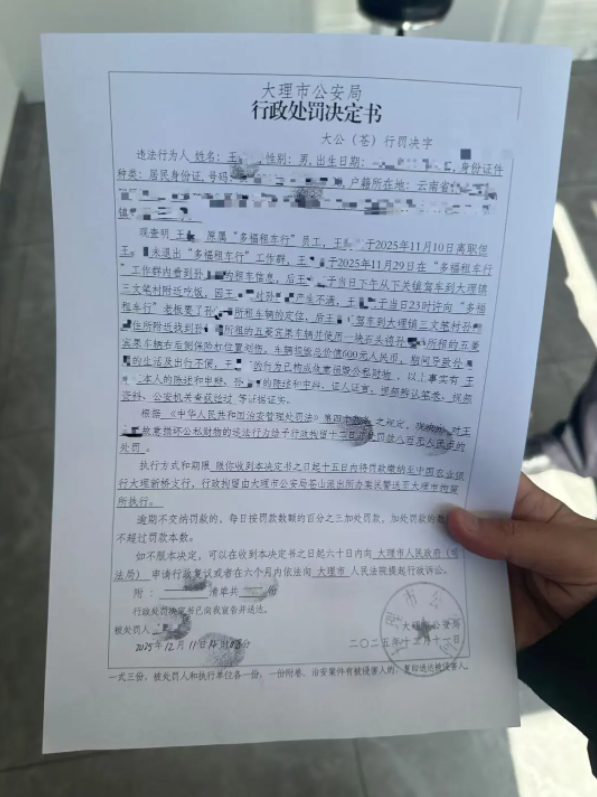 大理市公安局
行政处罚决定书
大公（苍）行罚决字
违法行为人 姓名：王 ，性别：男，出生日期： ，身份证件
种类：居民身份证，号码： ，户籍所在地：云南省
镇
现查明 王 ，原属“多福租车行”员工，王 于2025年11月10日离职但
王 未退出“多福租车行”工作群，王 于2025年11月29日在“多福租车行
”工作群内看到孙 的租车信息，后王 于当日下午从下关镇驾车到大理镇
三文笔村附近吃饭，因王 对孙 产生不满，王 于当日23时许向“多福
租车行”老板要了孙 所租车辆的定位，后王 驾车到大理镇三文笔村孙
住所附近找到孙 所租的五菱宾果车辆并使用一块石头将孙 所租的五菱
宾果车辆右后侧保险杠位置划伤，车辆损毁总价值600元人民币，期间导致孙
的生活及出行不便，王 的行为已构成故意损毁公私财物，以上事实有 王
本人的陈述和申辩，孙 的陈述和申辩，证人证言，视频辨认笔录，视频
资料，公安机关查获经过 等证据证实。
根据 《中华人民共和国治安管理处罚法》第四十九条 之规定，现决定 对王
故意损坏公私财物的违法行为给予行政拘留十 日并处罚款八百元人民币的
处罚。
执行方式和期限 限你收到本决定书之日起十五日内将罚款缴纳至中国农业银
行大理新桥支行，行政拘留由大理市公安局苍山派出所办案民警送至大理市拘留
所执行。
逾期不交纳罚款的，每日按罚款数额的百分之三加处罚款，加处罚款的数
不超过罚款本数。
如不服本决定，可以在收到本决定书之日起六十日内向 大理市人民政府（司
法局） 申请行政复议或者在六个月内依法向 大理市 人民法院提起行政诉讼。
附： 清单共 份
行政处罚决定书已向我宣告并送达。
被处罚人
大理市公安局
2025年12月11日14时03分
二〇二五年十二月十一日
一式三份，被处罚人和执行单位各一份，一份附卷。治安案件有被侵害人的，复印送达被侵害人。